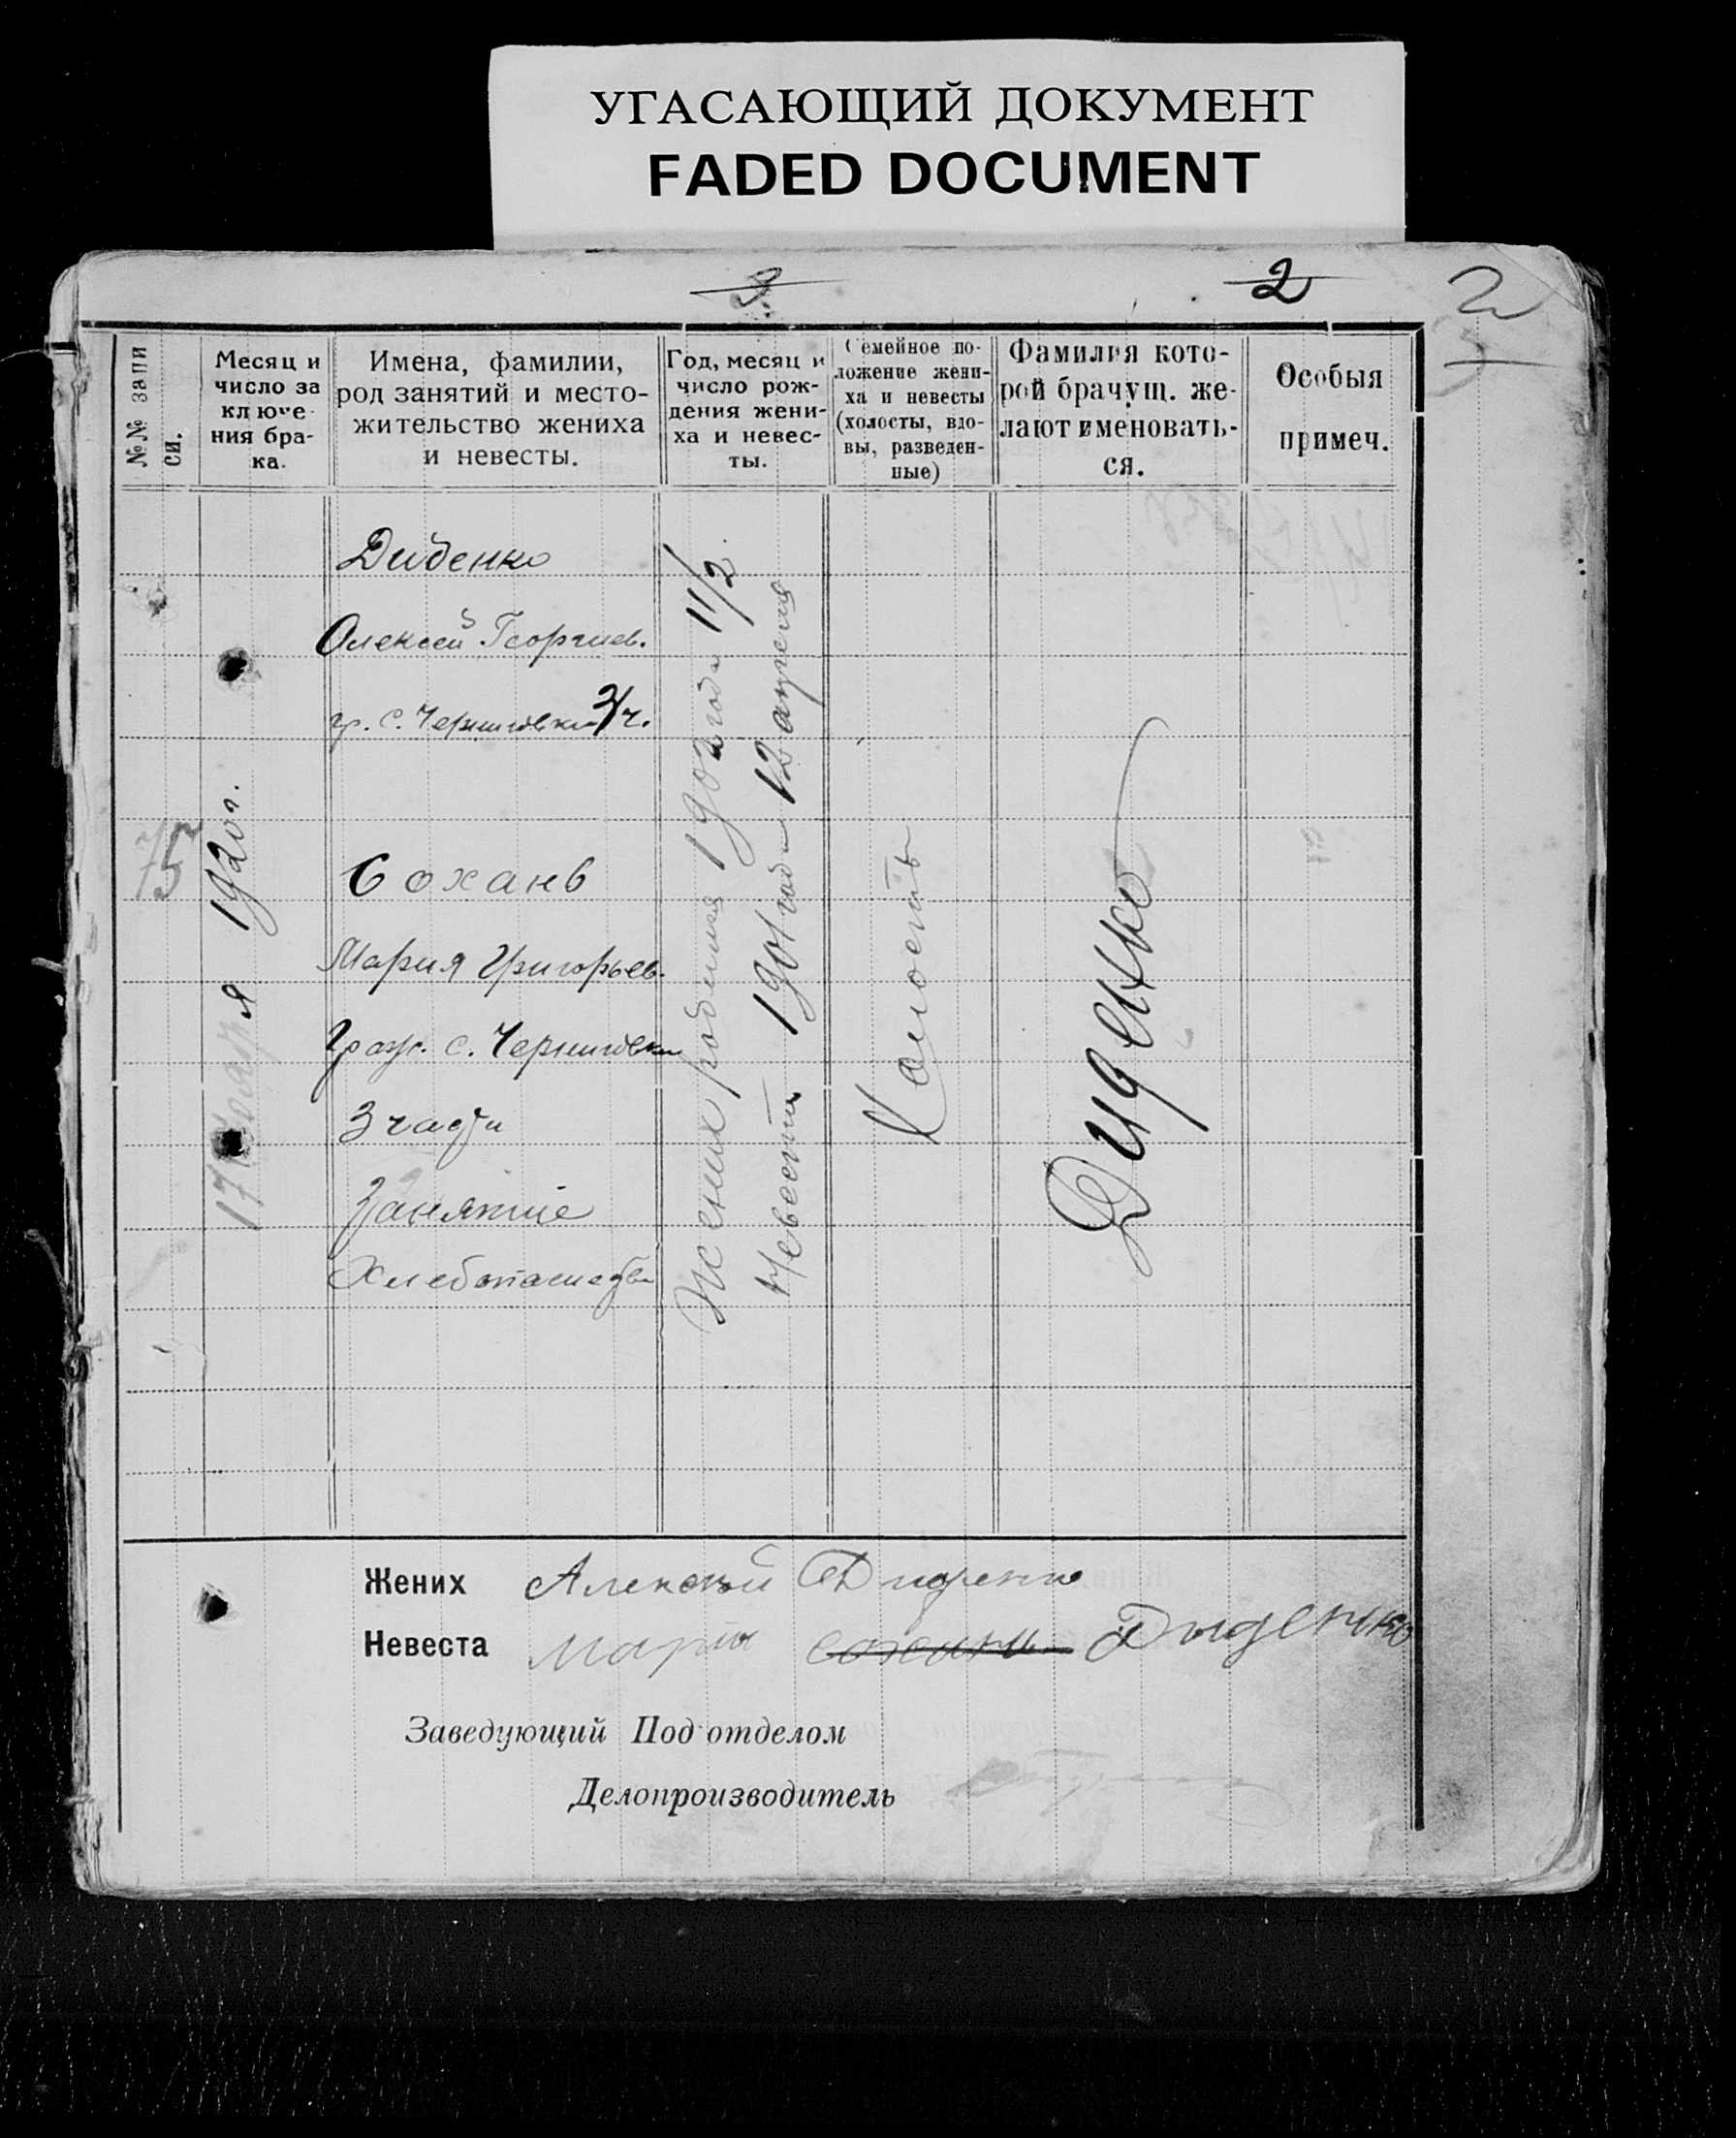 УГАСАЮЩИЙ ДОКУМЕНТ
FADED DOCUMENT
3
2
2
№№ запи
си.
Месяц и
число за
ключе-
ния бра-
ка.
Имена, фамилии,
род занятий и место-
жительство жениха
и невесты.
Год, месяц и
число рож-
дения жени-
ха и невес-
ты.
Семейное по-
ложение жени-
ха и невесты
(холосты, вдо-
вы, разведен-
ные)
Фамилия кото-
рой брачущ. же-
лают именовать-
ся.
Особыя
примеч.
75
17 ноября 1920 г.
Диденко
Олексей Георгиев.
гр. с. Черниговки 3/ч.
Сохань
Мария Григорьев.
Граж. с. Черниговки
3 части
Занятие
Хлебопашество
Жених родился 1902 года 11/2
Невеста 1901 года 12 апреля
Холосты
Диденко
Жених Алексей Диденко
Невеста Мария Сохань Диденко
Заведующий Под'отделом
Делопроизводитель